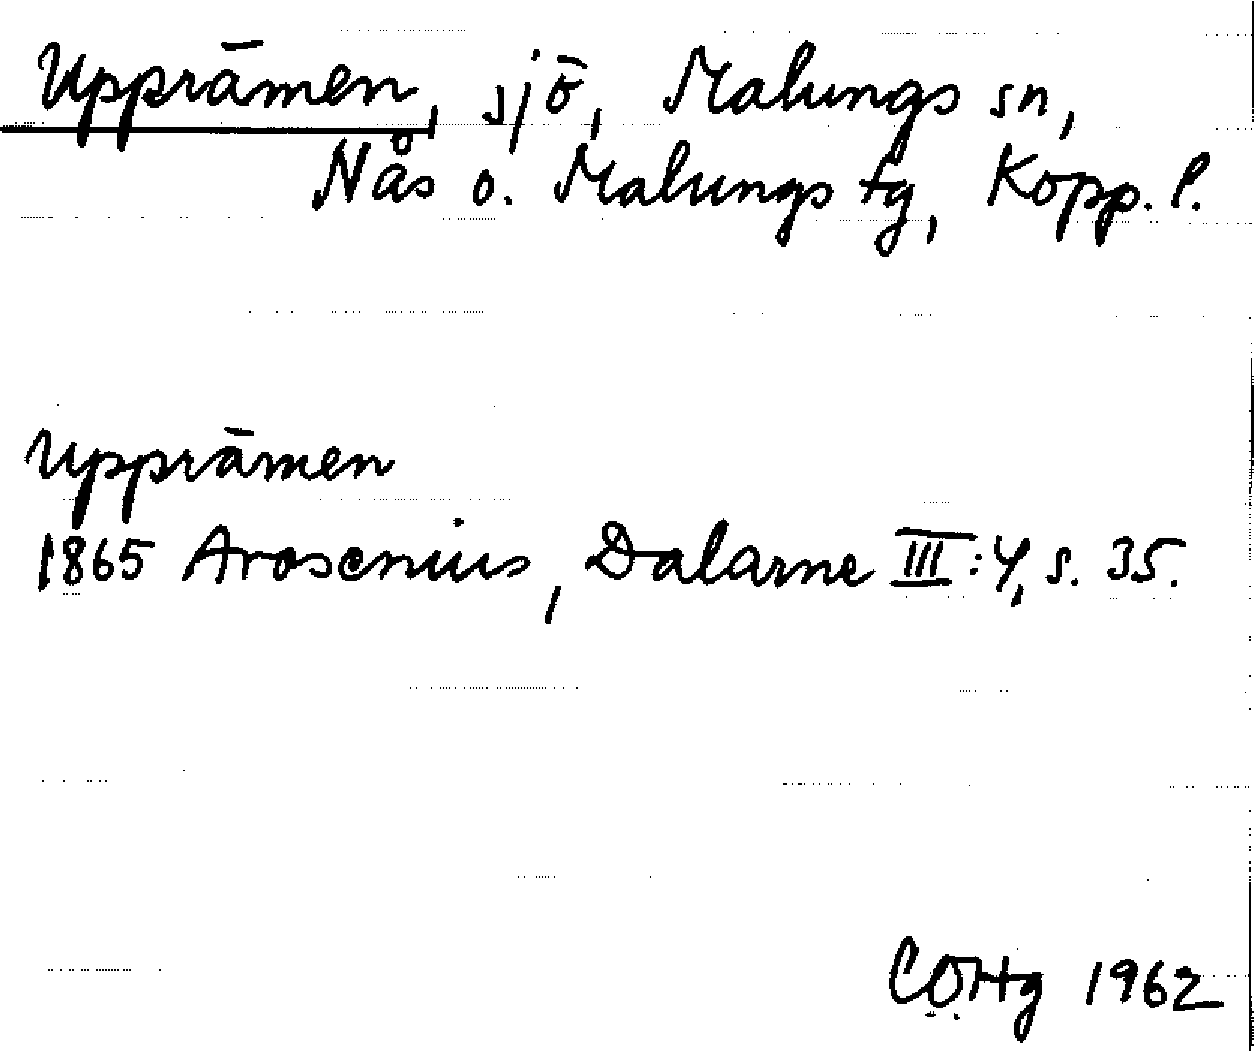 Upprämen, sjö, Malungs sn,
Nås o. Malungs tg, Kopp. l.
Upprämen
1865 Arosenius, Dalarne III:4, s. 35.
1962